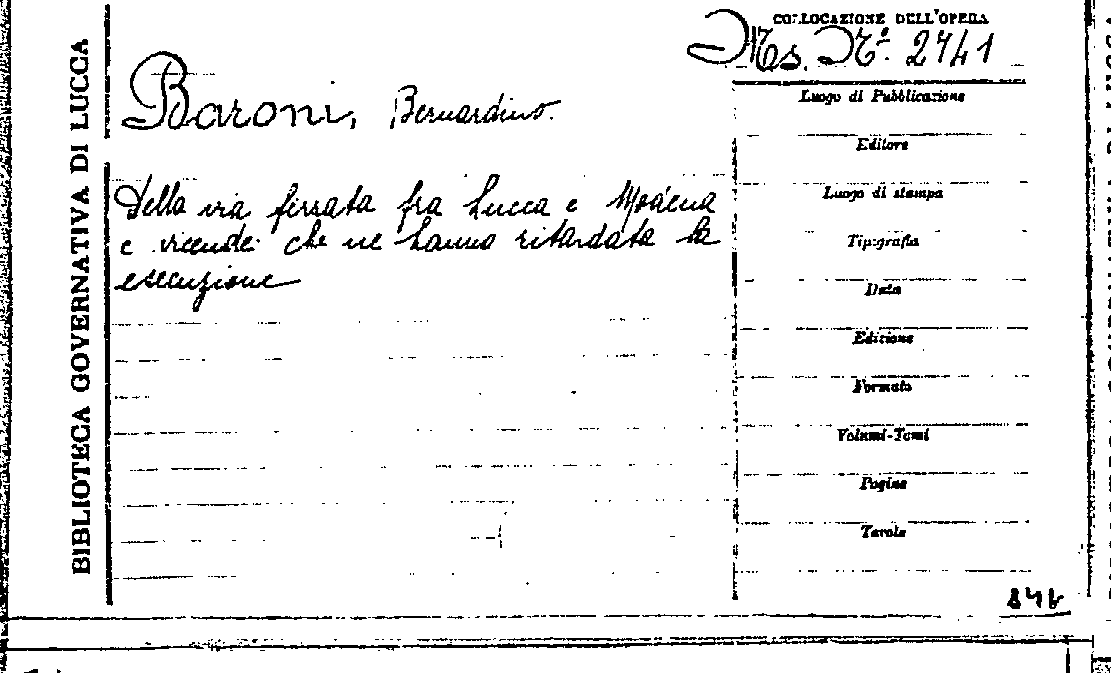 BIBLIOTECA GOVERNATIVA DI LUCCA
COLLOCAZIONE DELL'OPERA
Ms. N.º 2741
Baroni, Bernardino.
Della via ferrata fra Lucca e Modena
e vicende che ne hanno ritardata la
esecuzione
Luogo di Pubblicazione
Editore
Luogo di stampa
Tipografia
Data
Edizione
Formato
Volumi-Tomi
Pagine
Tavole